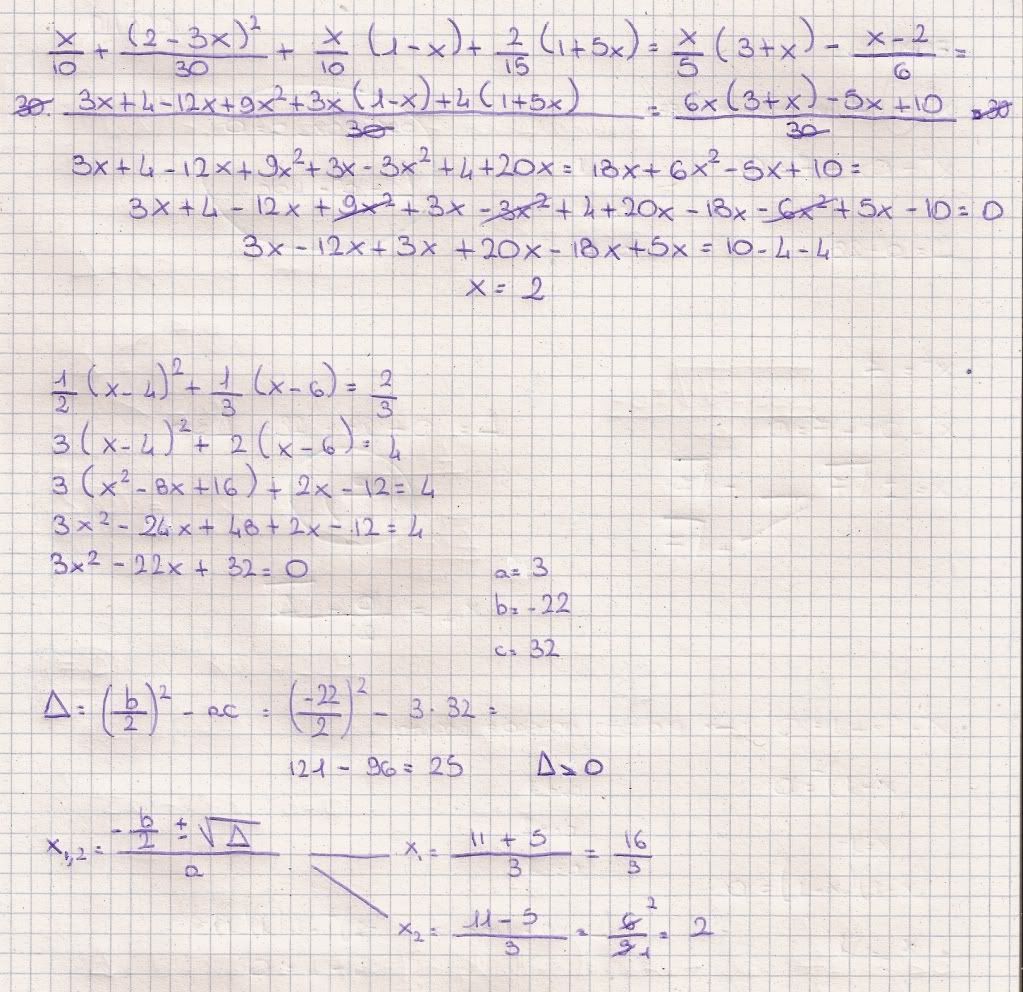 x/10 + (2-3x)²/30 + x/10 (1-x) + 2/15 (1+5x) = x/5 (3+x) - x-2/6 =
30. 3x+4-12x+9x²+3x(1-x)+4(1+5x)/30 = 6x(3+x)-5x+10/30 ·30
3x+4-12x+9x²+3x-3x²+4+20x = 18x+6x²-5x+10 =
3x+4-12x+9x²+3x-3x²+4+20x-18x-6x²+5x-10=0
3x-12x+3x+20x-18x+5x = 10-4-4
x = 2
1/2 (x-4)² + 1/3 (x-6) = 2/3
3(x-4)² + 2(x-6) = 4
3(x²-8x+16) + 2x-12 = 4
3x²-24x+48+2x-12 = 4
3x²-22x+32 = 0
a= 3
b= -22
c= 32
Δ = (b/2)² - ac = (-22/2)² - 3·32 =
121-96 = 25 Δ>0
x₁,₂ = -b/2 ± √Δ/a x₁ = 11+5/3 = 16/3
x₂ = 11-5/3 = 6²/3₁ = 2